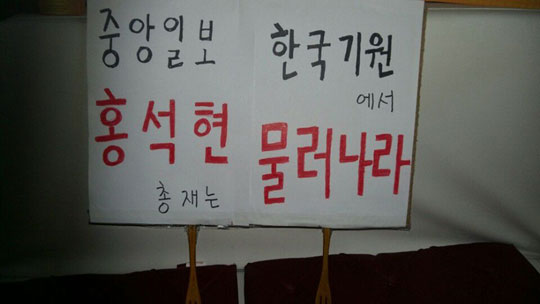 중앙일보
홍석현
총재는
한국기원
에서
물러나라